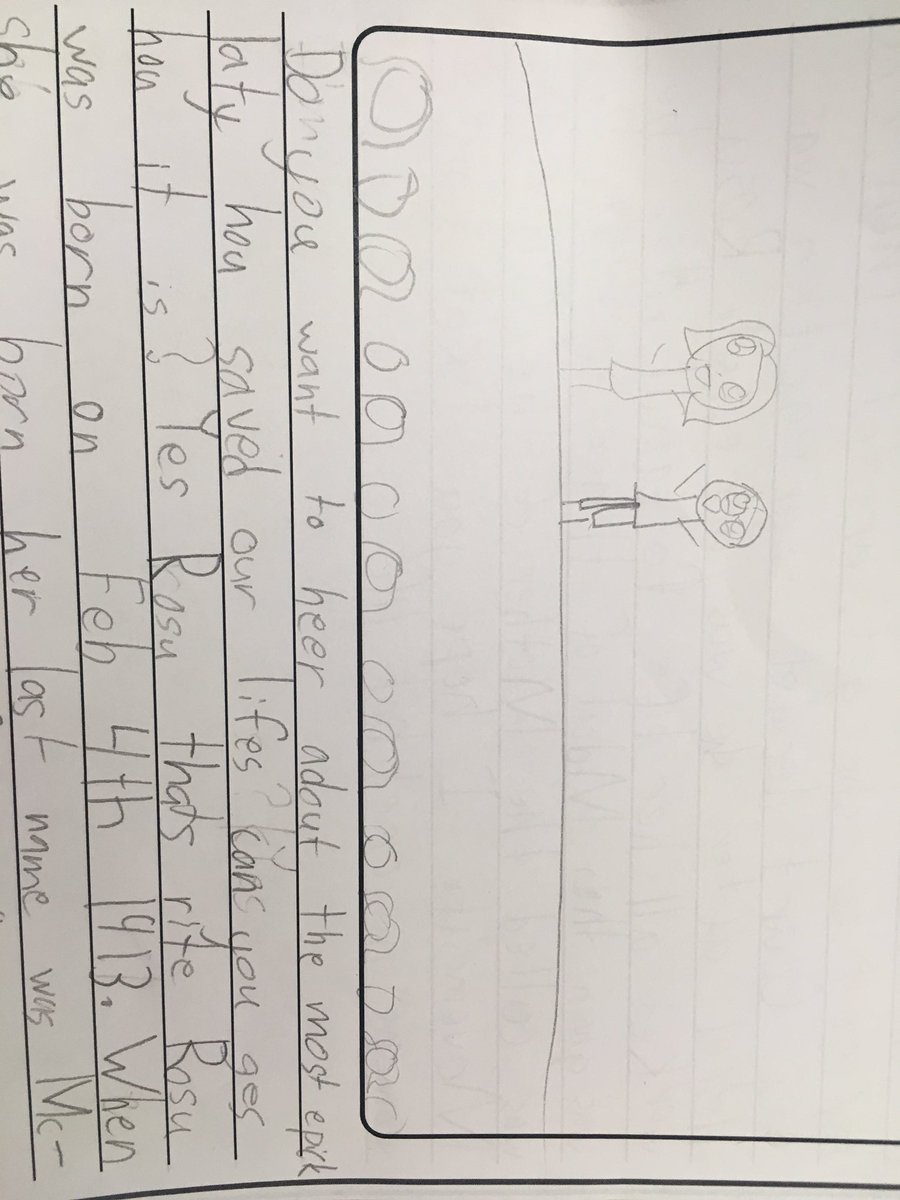 Donyou want to heer adout the most epick
laty hou saved our lifes? cansyou ges
hou it is? Yes Rosu thats rite Rosu
was born on Feh 4th 1913. When
she was born her last name was Mc-